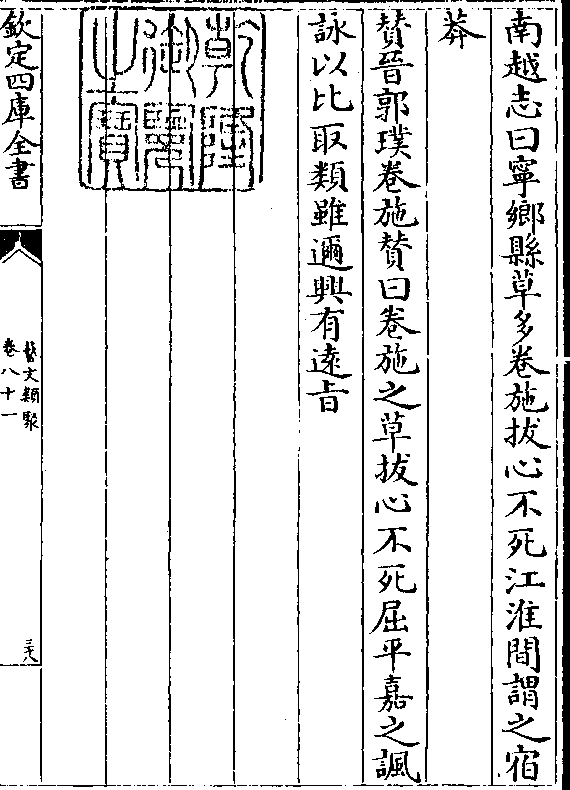 南越志曰寧鄉縣草多卷施拔心不死江淮間謂之宿
莽
贊晉郭璞卷施贊曰卷施之草拔心不死屈平嘉之諷
詠以比取類雖邇興有遠旨
乾隆御覽之寶
欽定四庫全書
藝文類聚
卷八十一
三十八